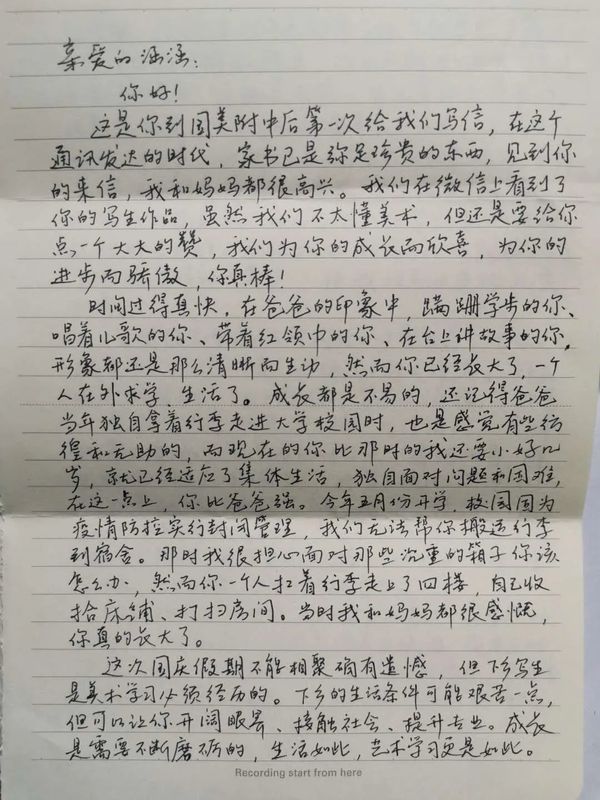 亲爱的涵涵:
你好!
这是你到国美附中后第一次给我们写信,在这个
通讯发达的时代,家书已是弥足珍贵的东西,见到你
的来信,我和妈妈都很高兴。我们在微信上看到了
你的写生作品,虽然我们不太懂美术,但还是要给你
点一个大大的赞,我们为你的成长而欣喜,为你的
进步而骄傲,你真棒!
时间过得真快,在爸爸的印象中,蹒跚学步的你、
唱着儿歌的你、带着红领巾的你、在台上讲故事的你,
形象都还是那么清晰而生动,然而你已经长大了,一个
人在外求学、生活了。成长都是不易的,还记得爸爸
当年独自拿着行李走进大学校园时,也是感觉有些彷
徨和无助的,而现在的你比那时的我还要小好几
岁,就已经适应了集体生活,独自面对问题和困难,
在这一点上,你比爸爸强。今年五月份开学,校园因为
疫情防控实行封闭管理,我们无法帮你搬运行李
到宿舍。那时我很担心面对那些沉重的箱子你该
怎么办,然而你一个人扛着行李走上了四楼,自己收
拾床铺、打扫房间。当时我和妈妈都很感慨,
你真的长大了。
这次国庆假期不能相聚确有遗憾,但下乡写生
是美术学习必须经历的。下乡的生活条件可能艰苦一点,
但可以让你开阔眼界、接触社会、提升专业。成长
是需要不断磨砺的,生活如此,艺术学习更是如此。
Recording start from here